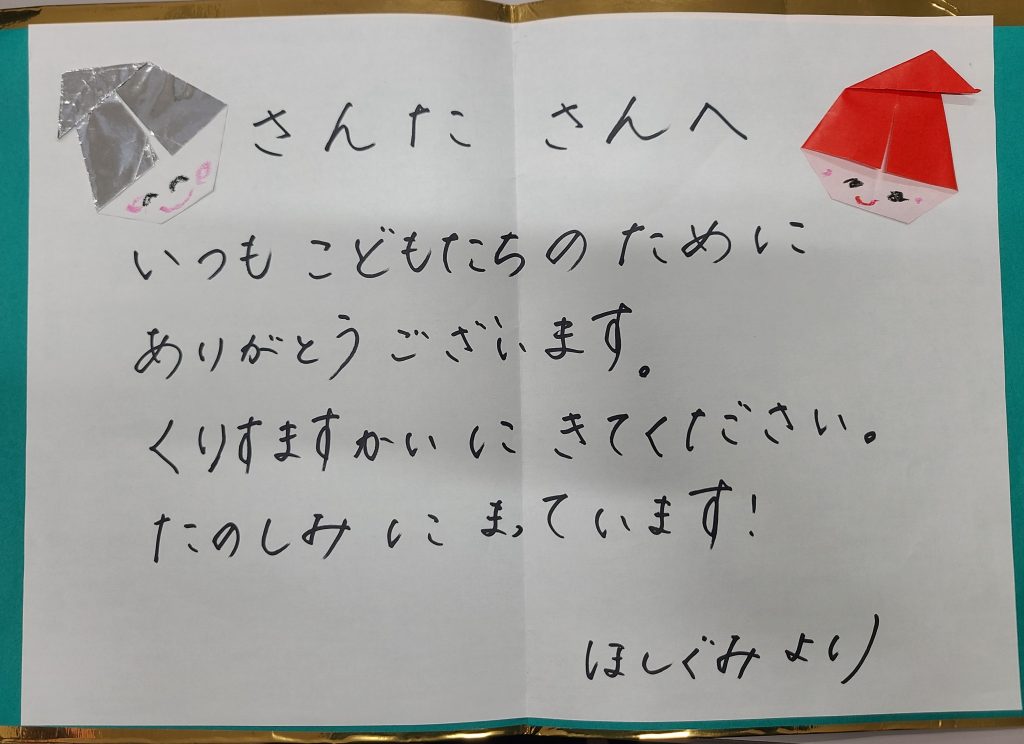 さんた さんへ
いつも こどもたちの ために
ありがとう ございます。
くりすますかい に きてください。
たのしみ に まっています!
ほしぐみ より